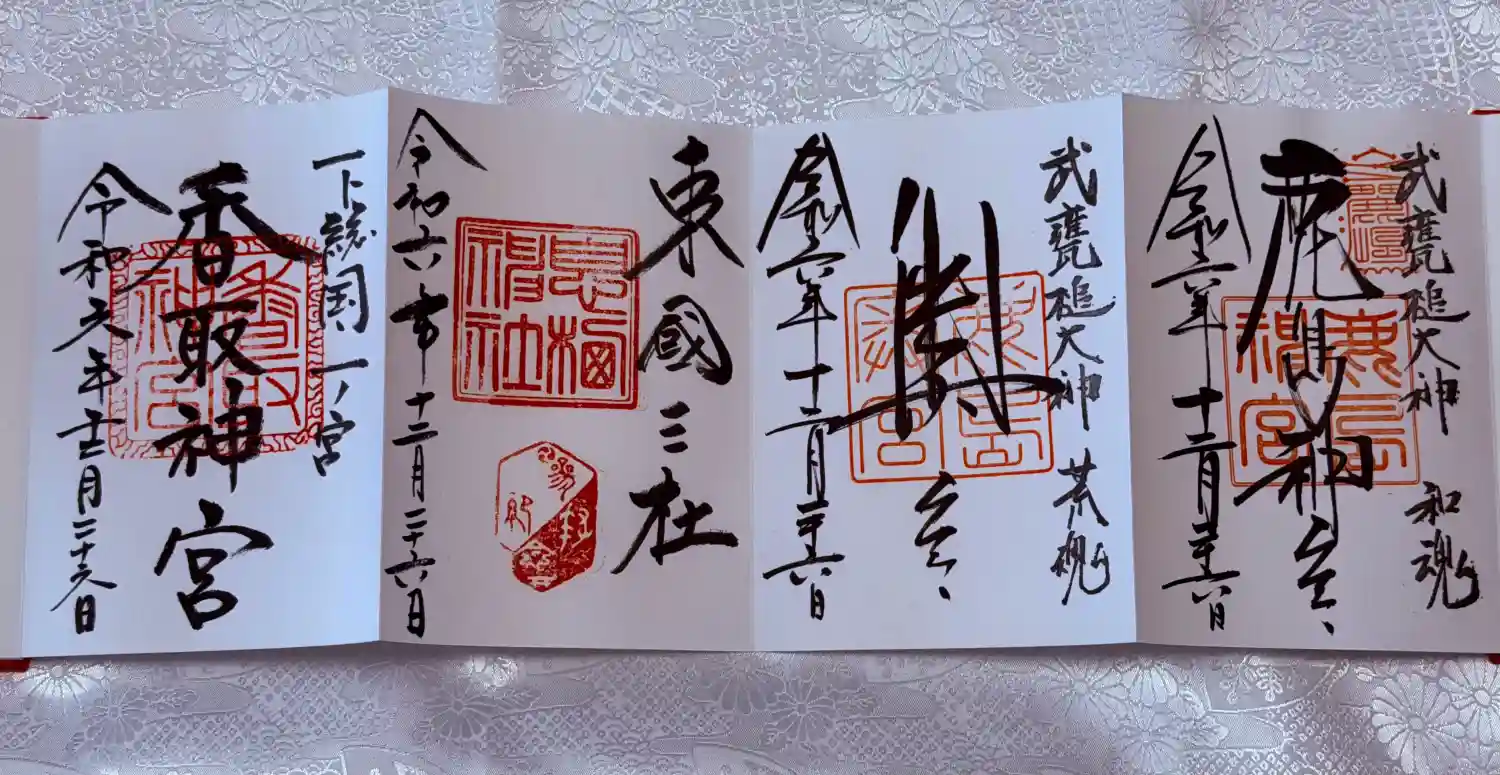 武甕槌大神 和魂
鹿島神宮
鹿島神宮
令和六年十二月二十六日
武甕槌大神 荒魂
奥宮
令和六年十二月二十六日
東國三社
息栖神社
令和六年十二月二十六日
下総国 一ノ宮
香取神宮
香取神宮
令和六年十二月二十六日